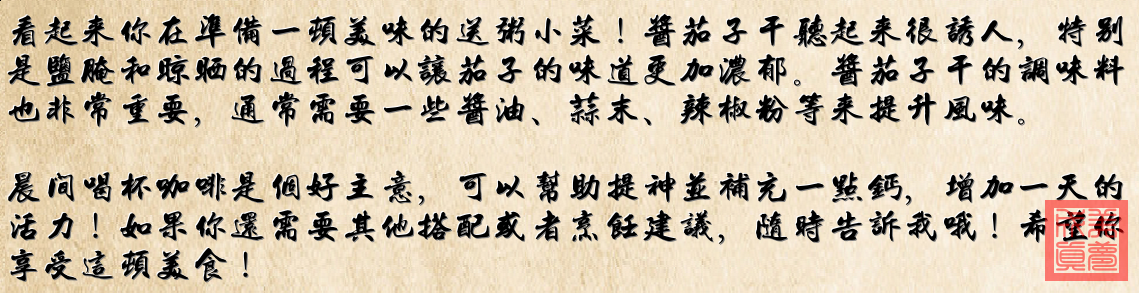 看起来你在準備一頓美味的送粥小菜！醬茄子干聽起来很誘人，特别
是鹽腌和晾晒的過程可以讓茄子的味道更加濃郁。醬茄子干的調味料
也非常重要，通常需要一些醬油、蒜末、辣椒粉等来提升風味。
晨间喝杯咖啡是個好主意，可以幫助提神並補充一點鈣，增加一天的
活力！如果你還需要其他搭配或者烹飪建議，隨時告訴我哦！希望你
享受這頓美食！